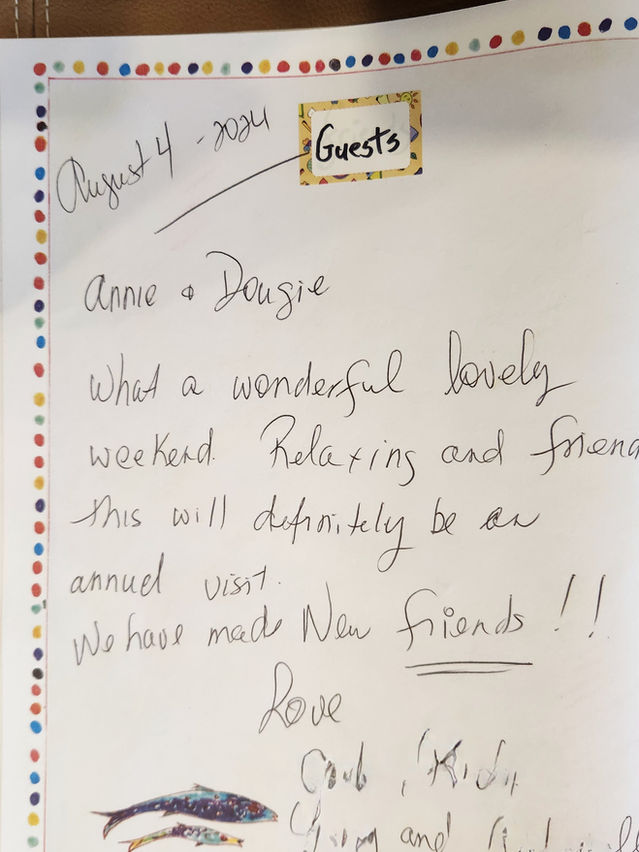 August 4 - 2024
Guests
Annie & Dougie
What a wonderful lovely
weekend. Relaxing and friend
this will definitely be an
annuel visit.
We have made New friends !!
Love
and